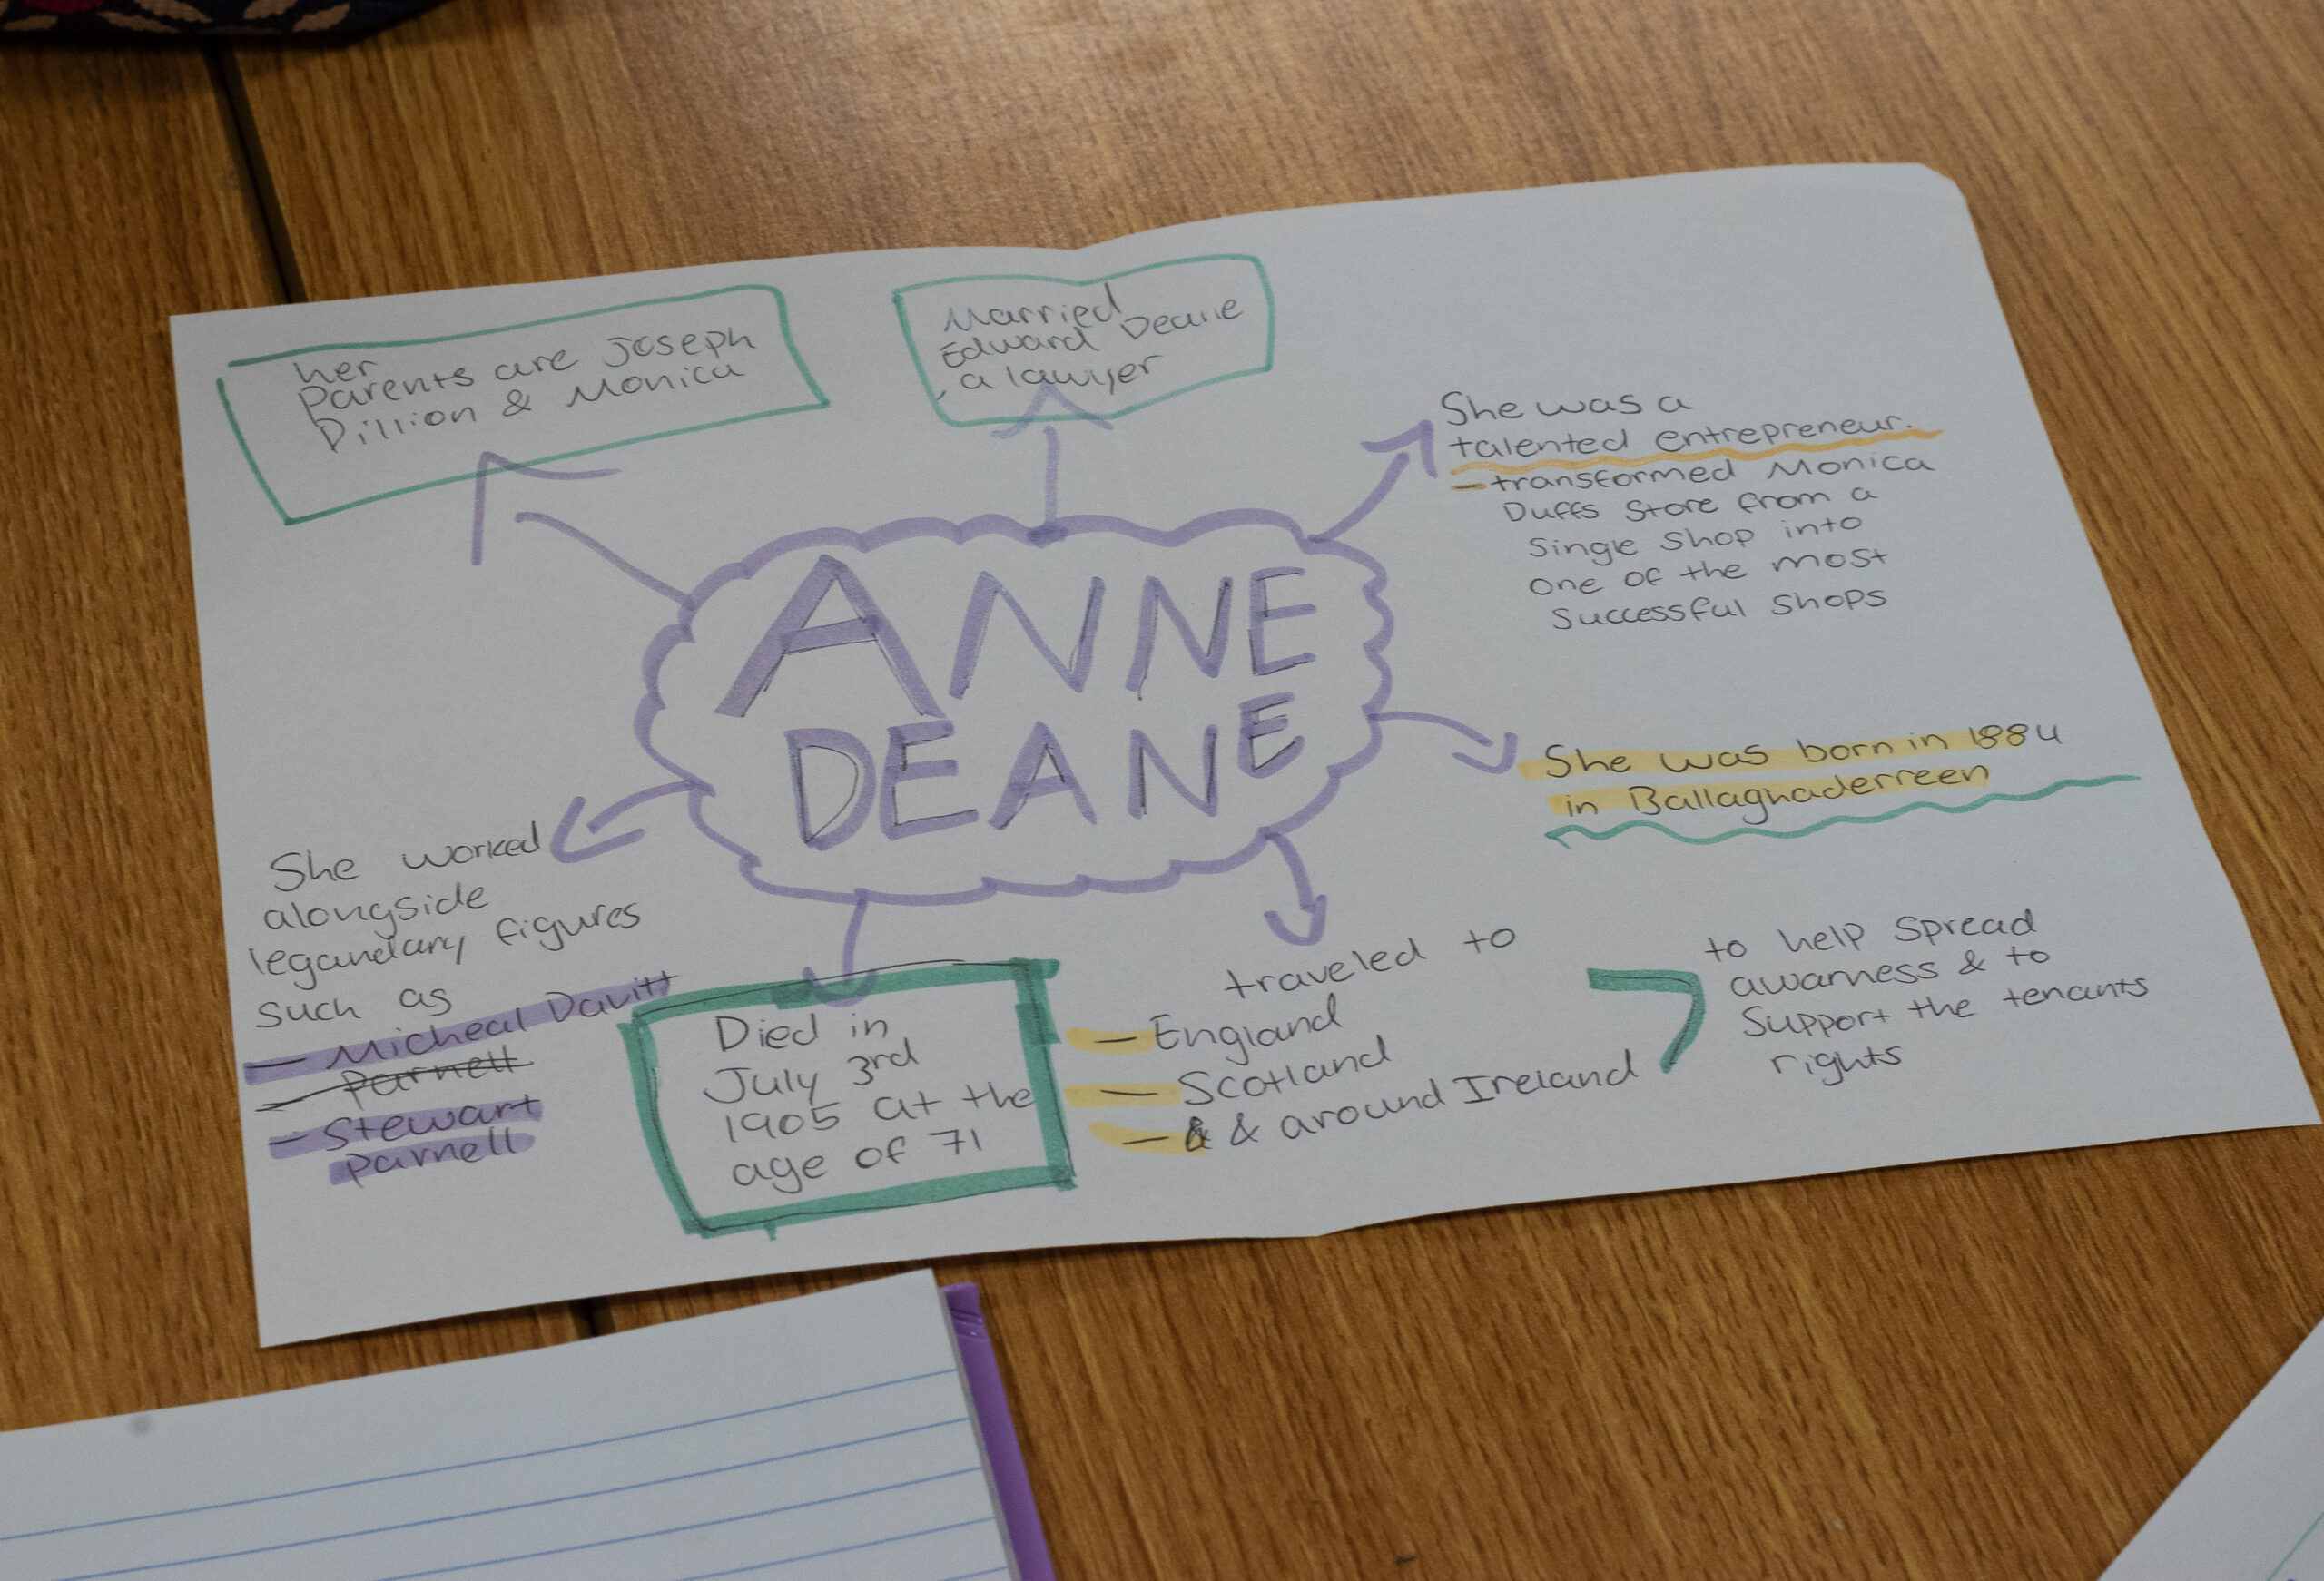 her
Parents are Joseph
Dillion & Monica
Married
Edward Deane
, a lawyer
She was a
talented entrepreneur.
- transformed Monica
Duffs Store from a
Single Shop into
one of the most
Successful Shops
ANNE
DEANE
She was born in 1884
in Ballaghaderreen
She worked
alongside
legandary figures
such as
- Micheal Davitt
- Parnell
- Stewart
Parnell
Died in
July 3rd
1905 at the
age of 71
traveled to
- England
- Scotland
- & & around Ireland
to help spread
awarness & to
Support the tenants
rights